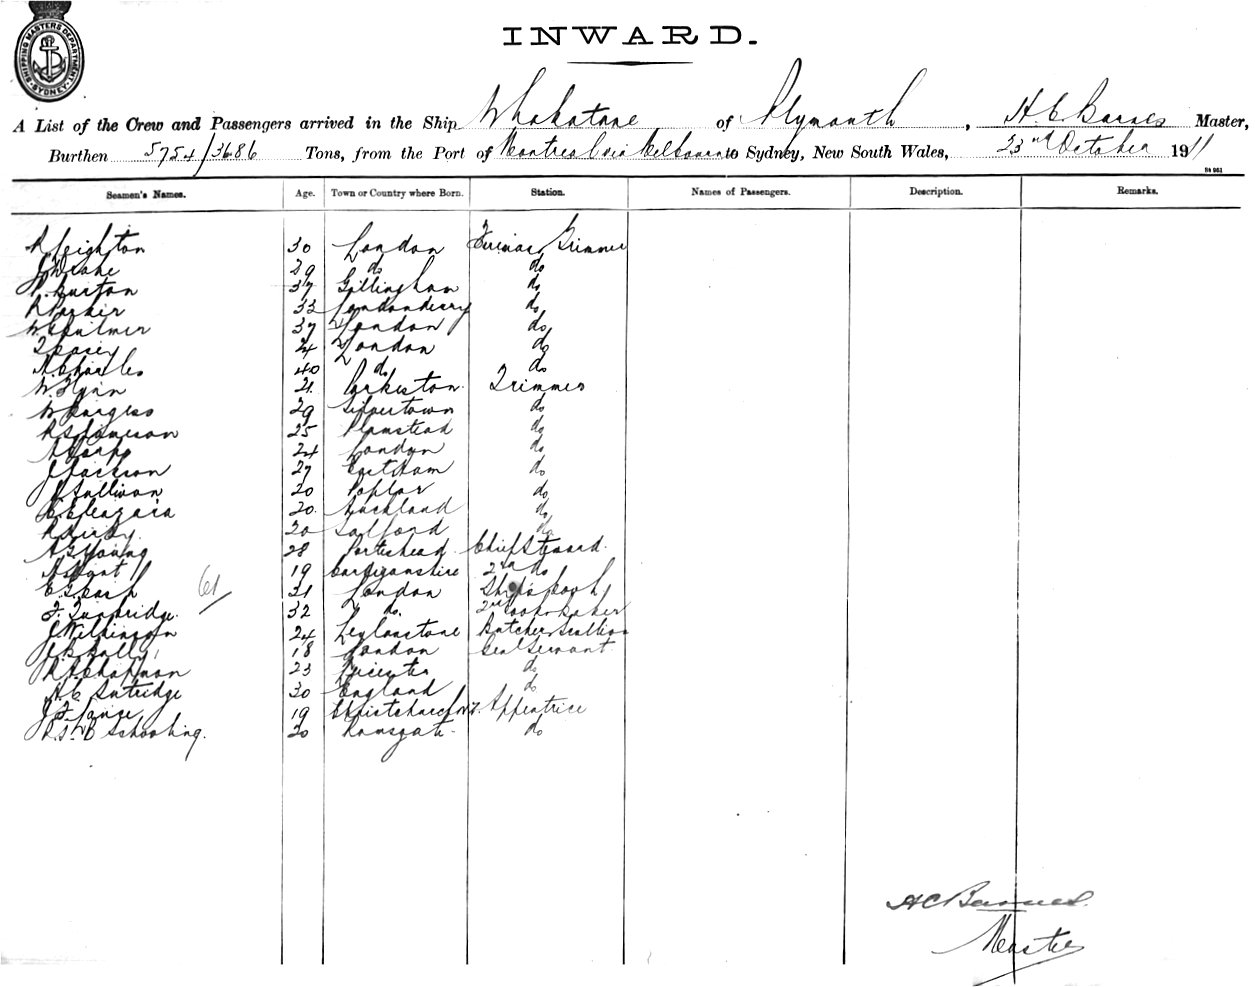 SHIPPING MASTERS DEPARTMENT SYDNEY
INWARD.
A List of the Crew and Passengers arrived in the Ship Whakatane of Plymouth, H. C Barnes Master,
Burthen 5754/3686 Tons, from the Port of Montreal via Melbourne to Sydney, New South Wales, 23rd October 1911
Seamen's Names. Age. Town or Country where Born. Station. Names of Passengers. Description. Remarks.
R Leighton 30 London Fireman & Trimmer
J Deane 29 do do
Burton 37 Gillingham do
R Parker 33 Londonderry do
W Fulmer 37 London do
T Casey 24 London do
A Charles 40 do do
W. Flynn 21 Parkeston Trimmer
W Burgess 29 Silvertown do
Jameson 25 Plumstead do
24 London do
J Jackson 27 East Ham do
J Sullivan 20 Poplar do
20 Auckland do
R Kirby. 20 Salford do
A G Young 28 Portishead Chief Steward.
A 19 Cardiganshire 2nd do
E G Cash 31 London Ship's Cook
61
F. Tunbridge. 32 do. 2nd Cook & Baker
J Wilkinson 24 Leytonstone Butcher Scullion
18 London Genl Servant
Chapman 23 Leicester do
H. C Gutridge 30 England do
J F 19 Christchurch N.Z. Appentrice
Schooling. 20 Ramsgate. do
H C Barnes.
Master